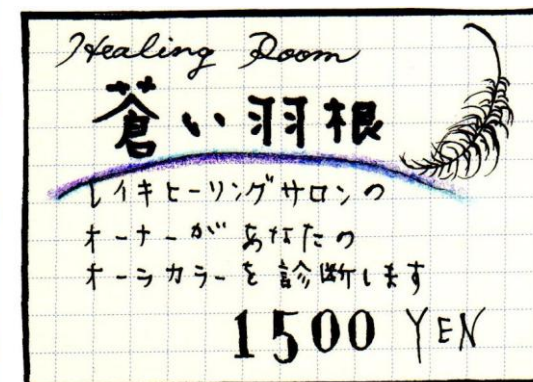 Healing Room
蒼い羽根
レイキヒーリングサロンの
オーナーがあなたの
オーラカラーを診断します
1500 YEN